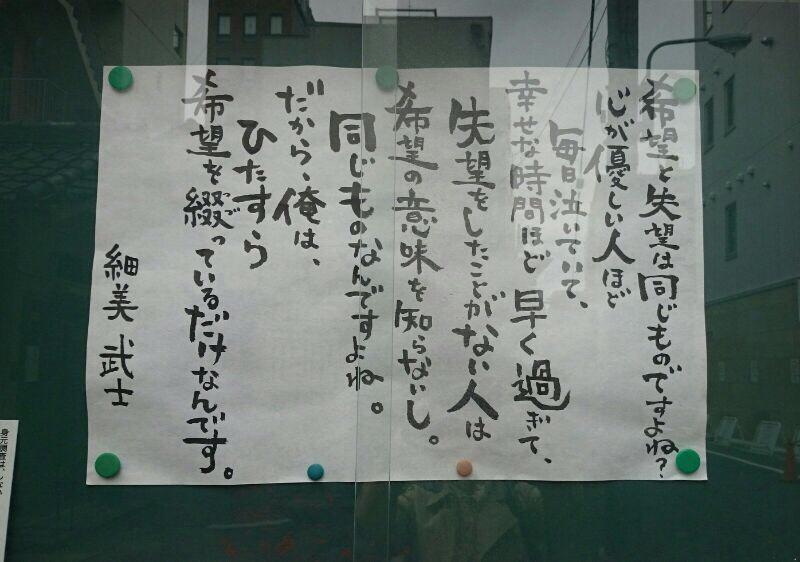 希望と失望は同じものですよね？
心が優しい人ほど
毎日泣いていて、
幸せな時間ほど早く過ぎて、
失望をしたことがない人は
希望の意味を知らないし。
同じものなんですよね。
だから、俺は、
ひたすら
希望を綴っているだけなんです。
細美武士
身元調査は、しない